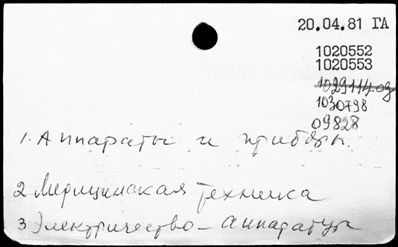 20.04.81 ГА
1020552
1020553
1029114 оз
1030798
09828
1. Аппараты и приборы.
2 Медицинская техника
3 Электричество – аппаратура